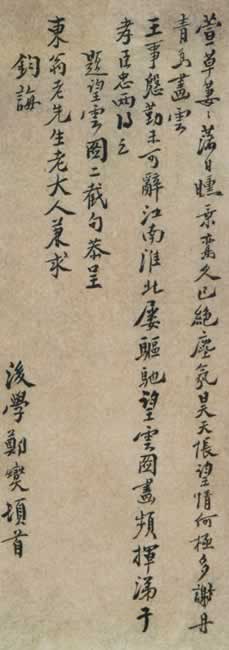 萱草萋〻滿目曛乘鸞久已絕塵氛昊天悵望情何極多謝丹
青為畫雲
王事慇勤未可辭江南淮北屢驅馳望雲圖畫頻揮涕子
孝臣忠兩得之
題望雲圖二截句恭呈
東翁老先生老大人兼求
鈞誨
後學鄭燮頓首